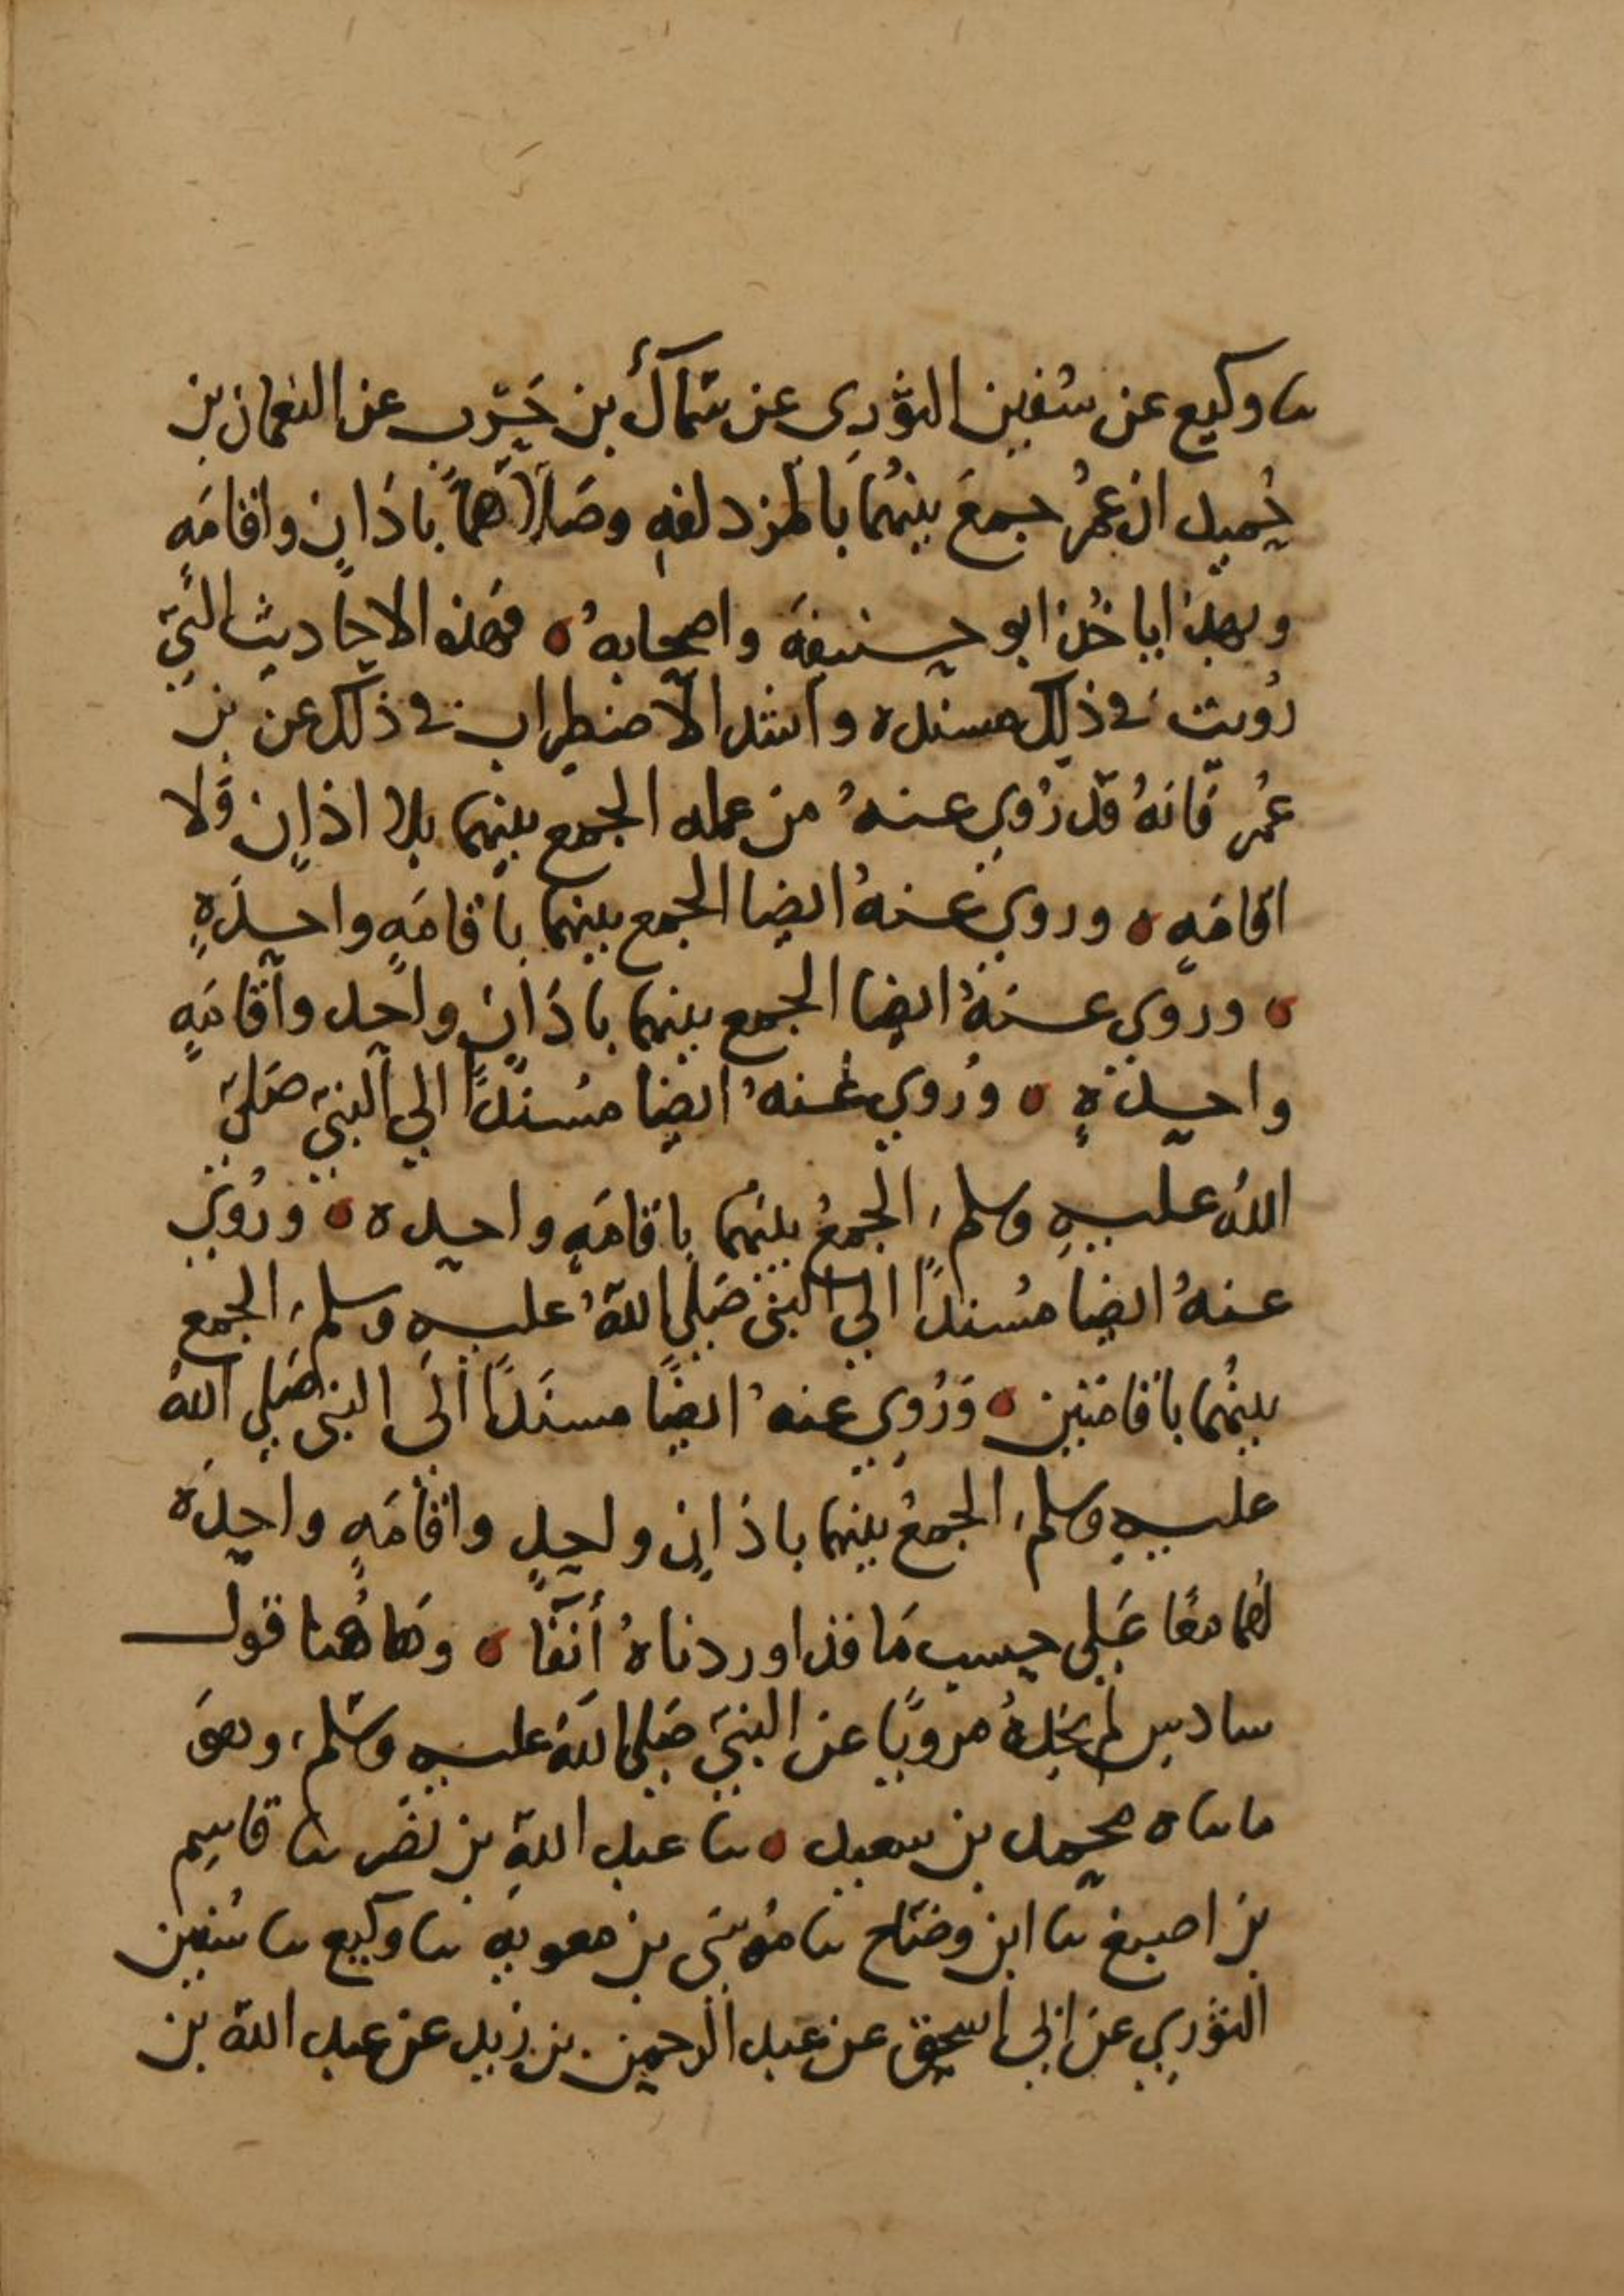 ثنا وكيع عن سفين الثوري عن سماك بن حرب عن النعمان بن
حميد ان عمر جمع بينهما بالمزدلفه وصلاهما باذان واقامه
وبهذا ياخذ ابو حنيفه واصحابه ه فهذه الاحاديث التي
رويت في ذلك مسنده واشد الاضطراب في ذلك عن بن
عمر فانه قد روي عنه من عمله الجمع بينهما بلا اذان ولا
اقامه ه وروي عنه ايضا الجمع بينهما باقامه واحده
ه وروي عنه ايضا الجمع بينهما باذان واحد واقامه
واحده ه وروي عنه ايضا مسندا الي النبي صلي
الله عليه وسلم، الجمع بينهما باقامه واحده ه وروي
عنه ايضا مسندا الي النبي صلي الله عليه وسلم، الجمع
بينهما باقامتين ه وروي عنه ايضا مسندا الى النبي صلي الله
عليه وسلم، الجمع بينهما باذان واحد واقامه واحده
لهما معا علي حسب ما قد اوردناه أنفا ه وهاهنا قول
سادس لم نجده مرويا عن النبي صلي الله عليه وسلم، وهو
ما ثناه محمد بن سعيد ه ثنا عبد الله بن نصر ثنا قاسم
بن اصبغ ثنا ابن وضاح ثنا موسى بن معويه ثنا وكيع ثنا سفين
الثوري عن ابي اسحق عن عبد الرحمن بن زيد عن عبد الله بن